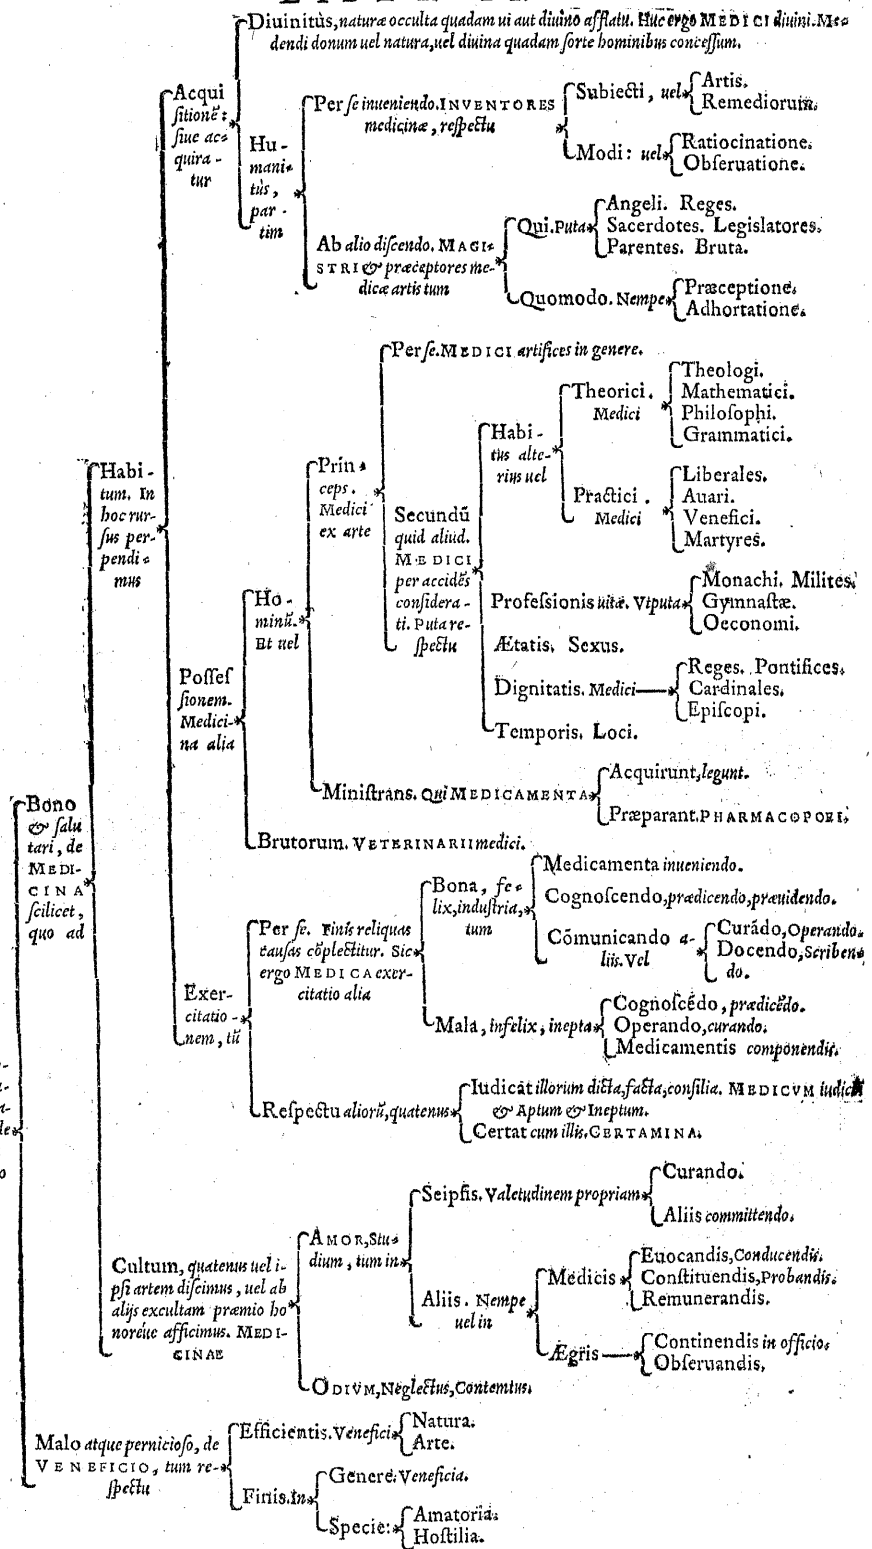 Diuinitùs, naturæ occulta quadam ui aut diuino afflatu. Huc ergo MEDICI diuini. Me-
dendi donum uel natura, uel diuina quadam sorte hominibus concessum.
Acqui
sitionẽ:
siue ac-
quira-
tur
Hu-
mani-
tùs,
par-
tim
Per se inueniendo. INVENTORES
medicinæ, respectu
Subiecti, uel
Artis.
Remediorum.
Modi: uel
Ratiocinatione.
Obseruatione.
Ab alio discendo. MAGI-
STRI & præceptores me-
dicæ artis tum
Qui. Puta
Angeli. Reges.
Sacerdotes. Legislatores.
Parentes. Bruta.
Quomodo. Nempe
Præceptione.
Adhortatione.
Habi-
tum. In
hoc rur-
sus per-
pendi-
mus
Possess
sionem.
Medici-
na alia
Ho-
minũ.
Et uel
Prin-
ceps.
Medici
ex arte
Per se. MEDICI artifices in genere.
Secundũ
quid aliud.
MEDICI
per accidẽs
considera-
ti. Puta re-
spectu
Habi-
tus alte-
rius uel
Theorici.
Medici
Theologi.
Mathematici.
Philosophi.
Grammatici.
Practici.
Medici
Liberales.
Auari.
Venefici.
Martyres.
Professionis uitæ. Vt puta
Monachi. Milites.
Gymnastæ.
Oeconomi.
Ætatis. Sexus.
Dignitatis. Medici
Reges. Pontifices.
Cardinales.
Episcopi.
Temporis. Loci.
Ministrans. Qui MEDICAMENTA
Acquirunt, legunt.
Præparant. PHARMACOPOEI.
Brutorum. VETERINARII medici.
Bono
& salu
tari, de
MEDI-
CINA
scilicet,
quo ad
Exer-
citatio-
nem, tũ
Per se. Finis reliquas
causas cõplectitur. Sic
ergo MEDICA exer-
citatio alia
Bona, fe-
lix, industria,
tum
Medicamenta inueniendo.
Cognoscendo, prædicendo, præuidendo.
Cõmunicando a-
liis. Vel
Curãdo, Operando.
Docendo, Scriben-
do.
Mala, infelix, inepta
Cognoscẽdo, prædicẽdo.
Operando, curando.
Medicamentis componendis.
Respectu aliorũ, quatenus
Iudicat illorum dicta, facta, consilia. MEDICVM
& Aptum & Ineptum.
Certat cum illis. CERTAMINA.
Cultum, quatenus uel i-
psi artem discimus, uel ab
alijs excultam præmio ho
noréue afficimus. MEDI-
CINAE
AMOR, Stu-
dium, tum in
Seipsis. Valetudinem propriam
Curando.
Aliis committendo.
Aliis. Nempe
uel in
Medicis
Euocandis, Conducendis.
Constituendis, Probandis.
Remunerandis.
Ægris
Continendis in officio.
Obseruandis.
ODIVM, Neglectus, Contemtus.
Malo atque pernicioso, de
VENEFICIO, tum re-
spectu
Efficientis. Venefici
Natura.
Arte.
Finis. In
Genere. Veneficia.
Specie:
Amatoria.
Hostilia.